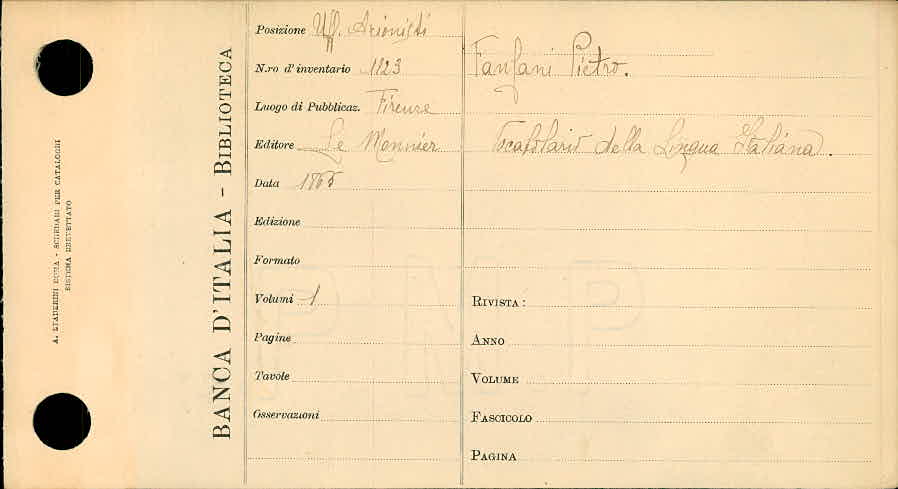 A. STADERINI ROMA - SCHEDARI PER CATALOGHI
SISTEMA BREVETTATO
BANCA D'ITALIA - BIBLIOTECA
Posizione Uff. Azionisti
N.ro d'inventario 1123
Luogo di Pubblicaz. Firenze
Editore Le Monnier
Data 1865
Edizione
Formato
Volumi 1
Pagine
Tavole
Osservazioni
Fanfani Pietro.
Vocabolario della Lingua Italiana.
RIVISTA:
ANNO
VOLUME
FASCICOLO
PAGINA